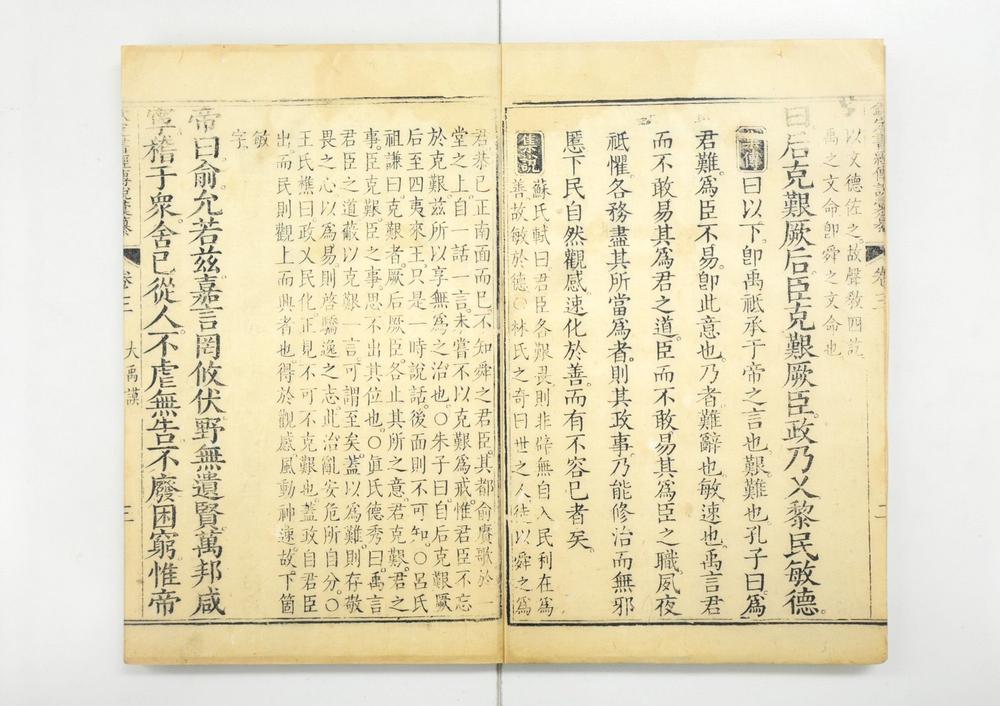 欽定書經傳說彙纂
卷三
二
以文德佐之故聲敎四訖
禹之文命卽舜之文命也
曰后克艱厥后臣克艱厥臣政乃乂黎民敏德
集傳 曰以下卽禹祗承于帝之言也艱難也孔子曰爲
君難爲臣不易卽此意也乃者難辭也敏速也禹言君
而不敢易其爲君之道臣而不敢易其爲臣之職夙夜
祗懼各務盡其所當爲者則其政事乃能修治而無邪
慝下民自然觀感速化於善而有不容已者矣
集說 蘇氏軾曰君臣各艱畏則非辟無自入民利在爲
善故敏於德○林氏之奇曰世之人徒以舜之爲
君恭已正南面而巳不知舜之君臣其都俞賡歌於一
堂之上自一話一言未嘗不以克艱爲戒惟君臣不忘
於克艱兹所以享無爲之治也○朱子曰自后克艱厥
后至四夷來王只是一時說話後面則不可知○呂氏
祖謙曰克艱者厥后厥臣各止其所之意君克艱君之
事臣克艱臣之事思不出其位也○眞氏德秀曰禹言
君臣之道蔽以克艱一言可謂至矣蓋以爲難則存敬
畏之心以爲易則啓驕逸之志此治亂安危所自分○
王氏樵曰政乂民化正見不可不克艱也蓋政自君臣
出而民則觀上而興者也得於觀感風動神速故下箇
敏
字
帝曰俞允若兹嘉言罔攸伏野無遺賢萬邦咸
寧稽于衆舍已從人不虐無告不廢困窮惟帝
欽定書經傳說彙纂
卷三
大禹謨
三